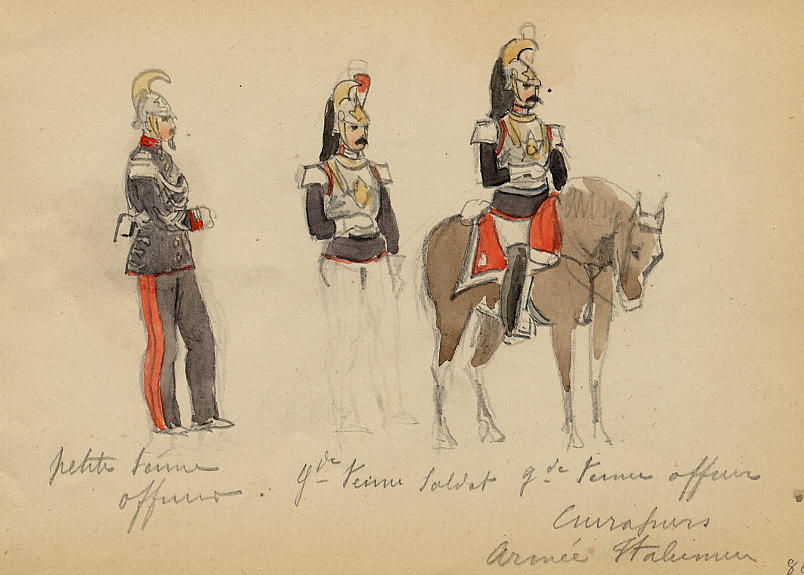 petite tenue
officier
gde tenue soldat
gde tenue officier
Cuirassiers
Armée Italienne